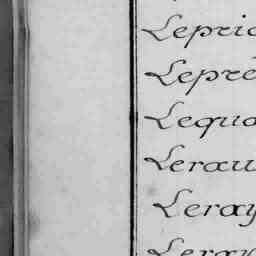 Lepric
Lepré
Lequa
Lerau
Leray
Leray